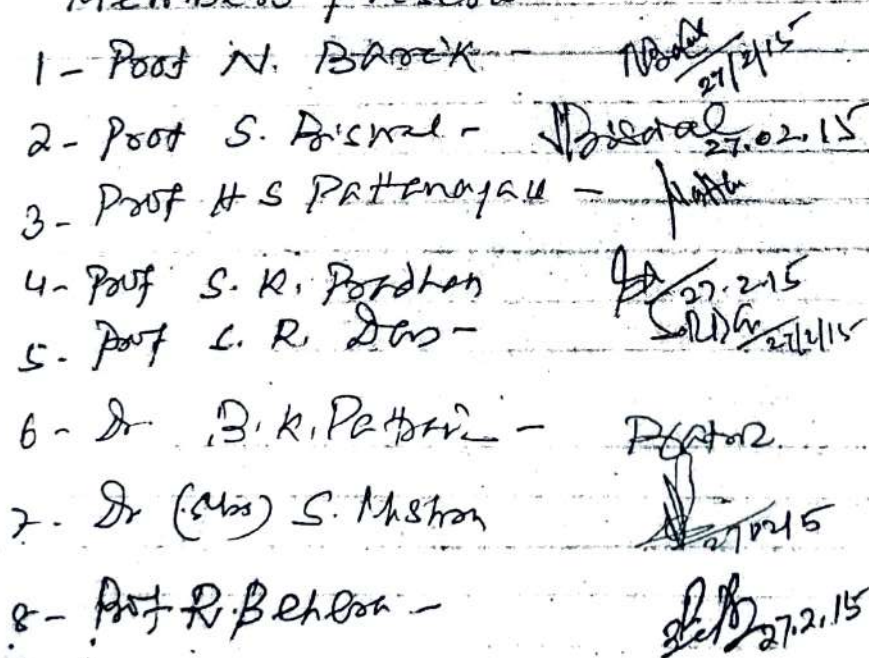 MEMBERS present
1 - Prof N. Barik -
27/2/15
2 - Prof S. Biswal - SBiswal 27.02.15
3 - Prof H S Pattanayak -
4 - Prof S. K. Pradhan 27.2.15
5 - Prof S. R. Das - SRDas 27/2/15
6 - Dr B. K. Pattnaik -
7 - Dr (Mrs) S. Mishra 27/02/15
8 - Prof R. Behera - 27.2.15